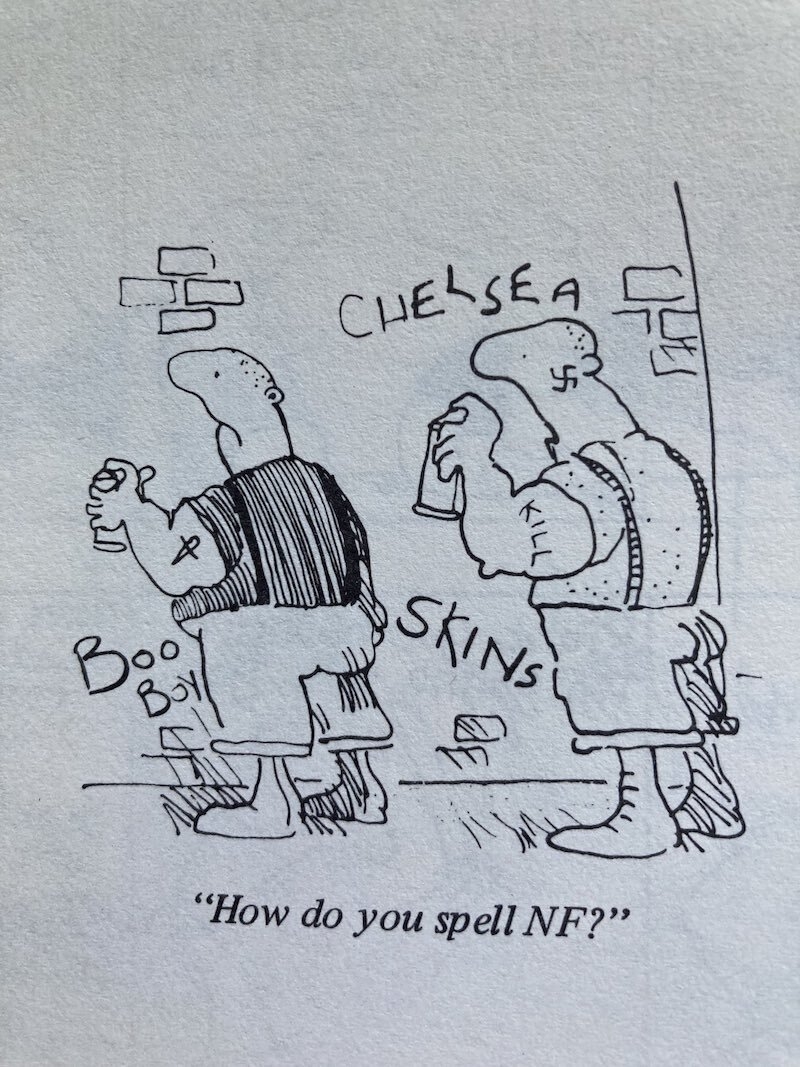 CHELSEA
KILL
SKINS
Boo
Boy
"How do you spell NF?"